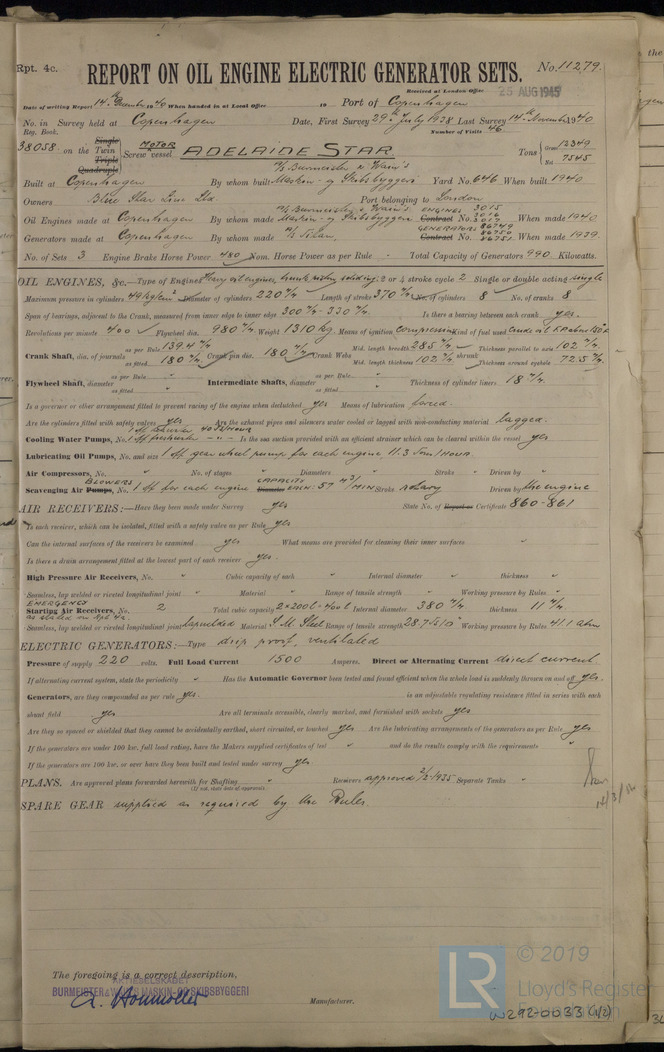 Rpt. 4c.
REPORT ON OIL ENGINE ELECTRIC GENERATOR SETS.
No. 11279.
Received at London Office 25 AUG 1945
Date of writing Report 14th December 1940 When handed in at Local Office 19 Port of Copenhagen
No. in Survey held at Copenhagen Date, First Survey 29th July 1938 Last Survey 14th November 1940
Reg. Book. Number of Visits 46
38058 on the Single Twin Triple Quadruple MOTOR Screw vessel ADELAIDE STAR Tons Gross 12349 Net 7545
Built at Copenhagen By whom built A/S Burmeister & Wain's Maskin- og Skibsbyggeri Yard No. 646 When built 1940
Owners Blue Star Line Ltd. Port belonging to London
Oil Engines made at Copenhagen By whom made A/S Burmeister & Wain's Maskin- og Skibsbyggeri ENGINES Contract No. 3015 3016 3017 When made 1940
Generators made at Copenhagen By whom made A/S Titan GENERATORS Contract No. 86749 86750 86751 When made 1939.
No. of Sets 3 Engine Brake Horse Power 480 Nom. Horse Power as per Rule - Total Capacity of Generators 990 Kilowatts.
OIL ENGINES, &c.—Type of Engines Heavy oil engines, trunk piston, 2 or 4 stroke cycle 2 Single or double acting single
Maximum pressure in cylinders 49 kg/cm² Diameter of cylinders 220 m/m Length of stroke 370 m/m No. of cylinders 8 No. of cranks 8
Span of bearings, adjacent to the Crank, measured from inner edge to inner edge 300 m/m - 330 m/m. Is there a bearing between each crank yes.
Revolutions per minute 400 Flywheel dia. 980 m/m. Weight 1310 kg Means of ignition compression Kind of fuel used crude oil
Crank Shaft, dia. of journals as per Rule 139.4 m/m as fitted 180 m/m. Crank pin dia. 180 m/m Crank Webs Mid. length breadth 285 m/m Mid. length thickness 102 m/m shrunk Thickness parallel to axis 102 m/m Thickness around eyehole 72.5 m/m.
Flywheel Shaft, diameter as per Rule " as fitted " Intermediate Shafts, diameter as per Rule " as fitted " Thickness of cylinder liners 18 m/m
Is a governor or other arrangement fitted to prevent racing of the engine when declutched yes Means of lubrication forced.
Are the cylinders fitted with safety valves yes Are the exhaust pipes and silencers water cooled or lagged with non-conducting material lagged.
Cooling Water Pumps, No. 1 off freshwater — " — Is the sea suction provided with an efficient strainer which can be cleared within the vessel yes
Lubricating Oil Pumps, No. and size 1 off gear wheel pump for each engine 11.3 Tons/HOUR.
Air Compressors, No. " No. of stages " Diameters " Stroke " Driven by "
Scavenging Air Pumps, BLOWERS No. 1 off for each engine CAPACITY Diameter EACH: 57 M³/MIN Stroke rotary Driven by the engine
AIR RECEIVERS:—Have they been made under Survey yes State No. of Report or Certificate 860-861
Is each receiver, which can be isolated, fitted with a safety valve as per Rule yes
Can the internal surfaces of the receivers be examined yes What means are provided for cleaning their inner surfaces "
Is there a drain arrangement fitted at the lowest part of each receiver yes.
High Pressure Air Receivers, No. " Cubic capacity of each " Internal diameter " thickness "
Seamless, lap welded or riveted longitudinal joint " Material " Range of tensile strength " Working pressure by Rules "
EMERGENCY
Starting Air Receivers, No. 2 Total cubic capacity 2×200 l = 400 l Internal diameter 380 m/m thickness 11 m/m
as stated on Rpt 4a.
Seamless, lap welded or riveted longitudinal joint lapwelded Material S.M. Steel Range of tensile strength Working pressure by Rules 41.1 atm
ELECTRIC GENERATORS:—Type drip proof, ventilated
Pressure of supply 220 volts. Full Load Current 1500 Amperes. Direct or Alternating Current direct current
If alternating current system, state the periodicity " Has the Automatic Governor been tested and found efficient when the whole load is suddenly thrown on and off yes.
Generators, are they compounded as per rule yes. is an adjustable regulating resistance fitted in series with each
shunt field yes Are all terminals accessible, clearly marked, and furnished with sockets yes
Are they so spaced or shielded that they cannot be accidentally earthed, short circuited, or touched yes Are the lubricating arrangements of the generators as per Rule yes
If the generators are under 100 kw. full load rating, have the Makers supplied certificates of test " and do the results comply with the requirements "
If the generators are 100 kw. or over have they been built and tested under survey yes
PLANS. Are approved plans forwarded herewith for Shafting " Receivers approved 2/2 1935 Separate Tanks "
(If not, state date of approval)
SPARE GEAR supplied as required by the Rules.
The foregoing is a correct description,
AKTIESELSKABET
BURMEISTER & WAIN'S MASKIN- OG SKIBSBYGGERI
Manufacturer.
© 2019
LR
Lloyd's Register
Foundation
W292-0033 (1/2)